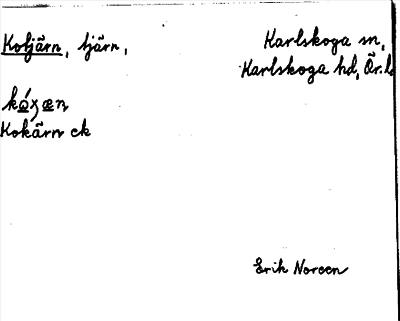 Kotjärn, tjärn,
Karlskoga sn,
Karlskoga hd, Ör. l
Kokärn ck
Erik Noreen